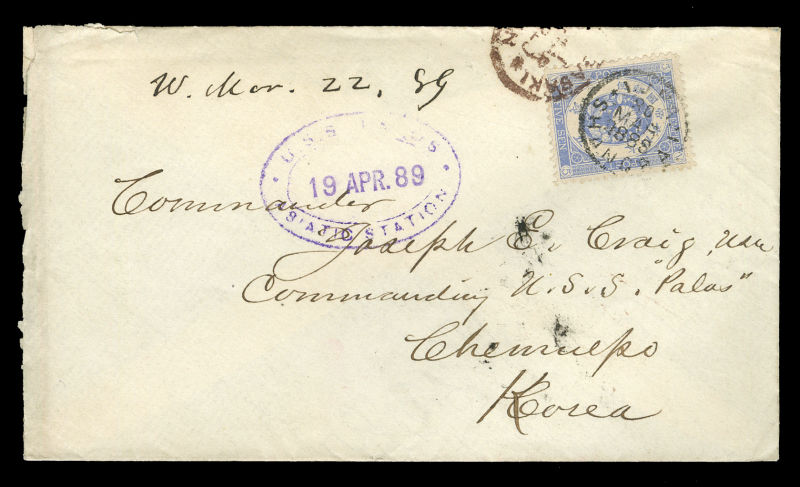 W. Mar. 22, 89
U.S.S.
19 APR. 89
ASIATIC STATION
FIVE SEN
Commander
Joseph E. Craig, USN
Commanding U.S.S. "Palos"
Chemulpo
Korea